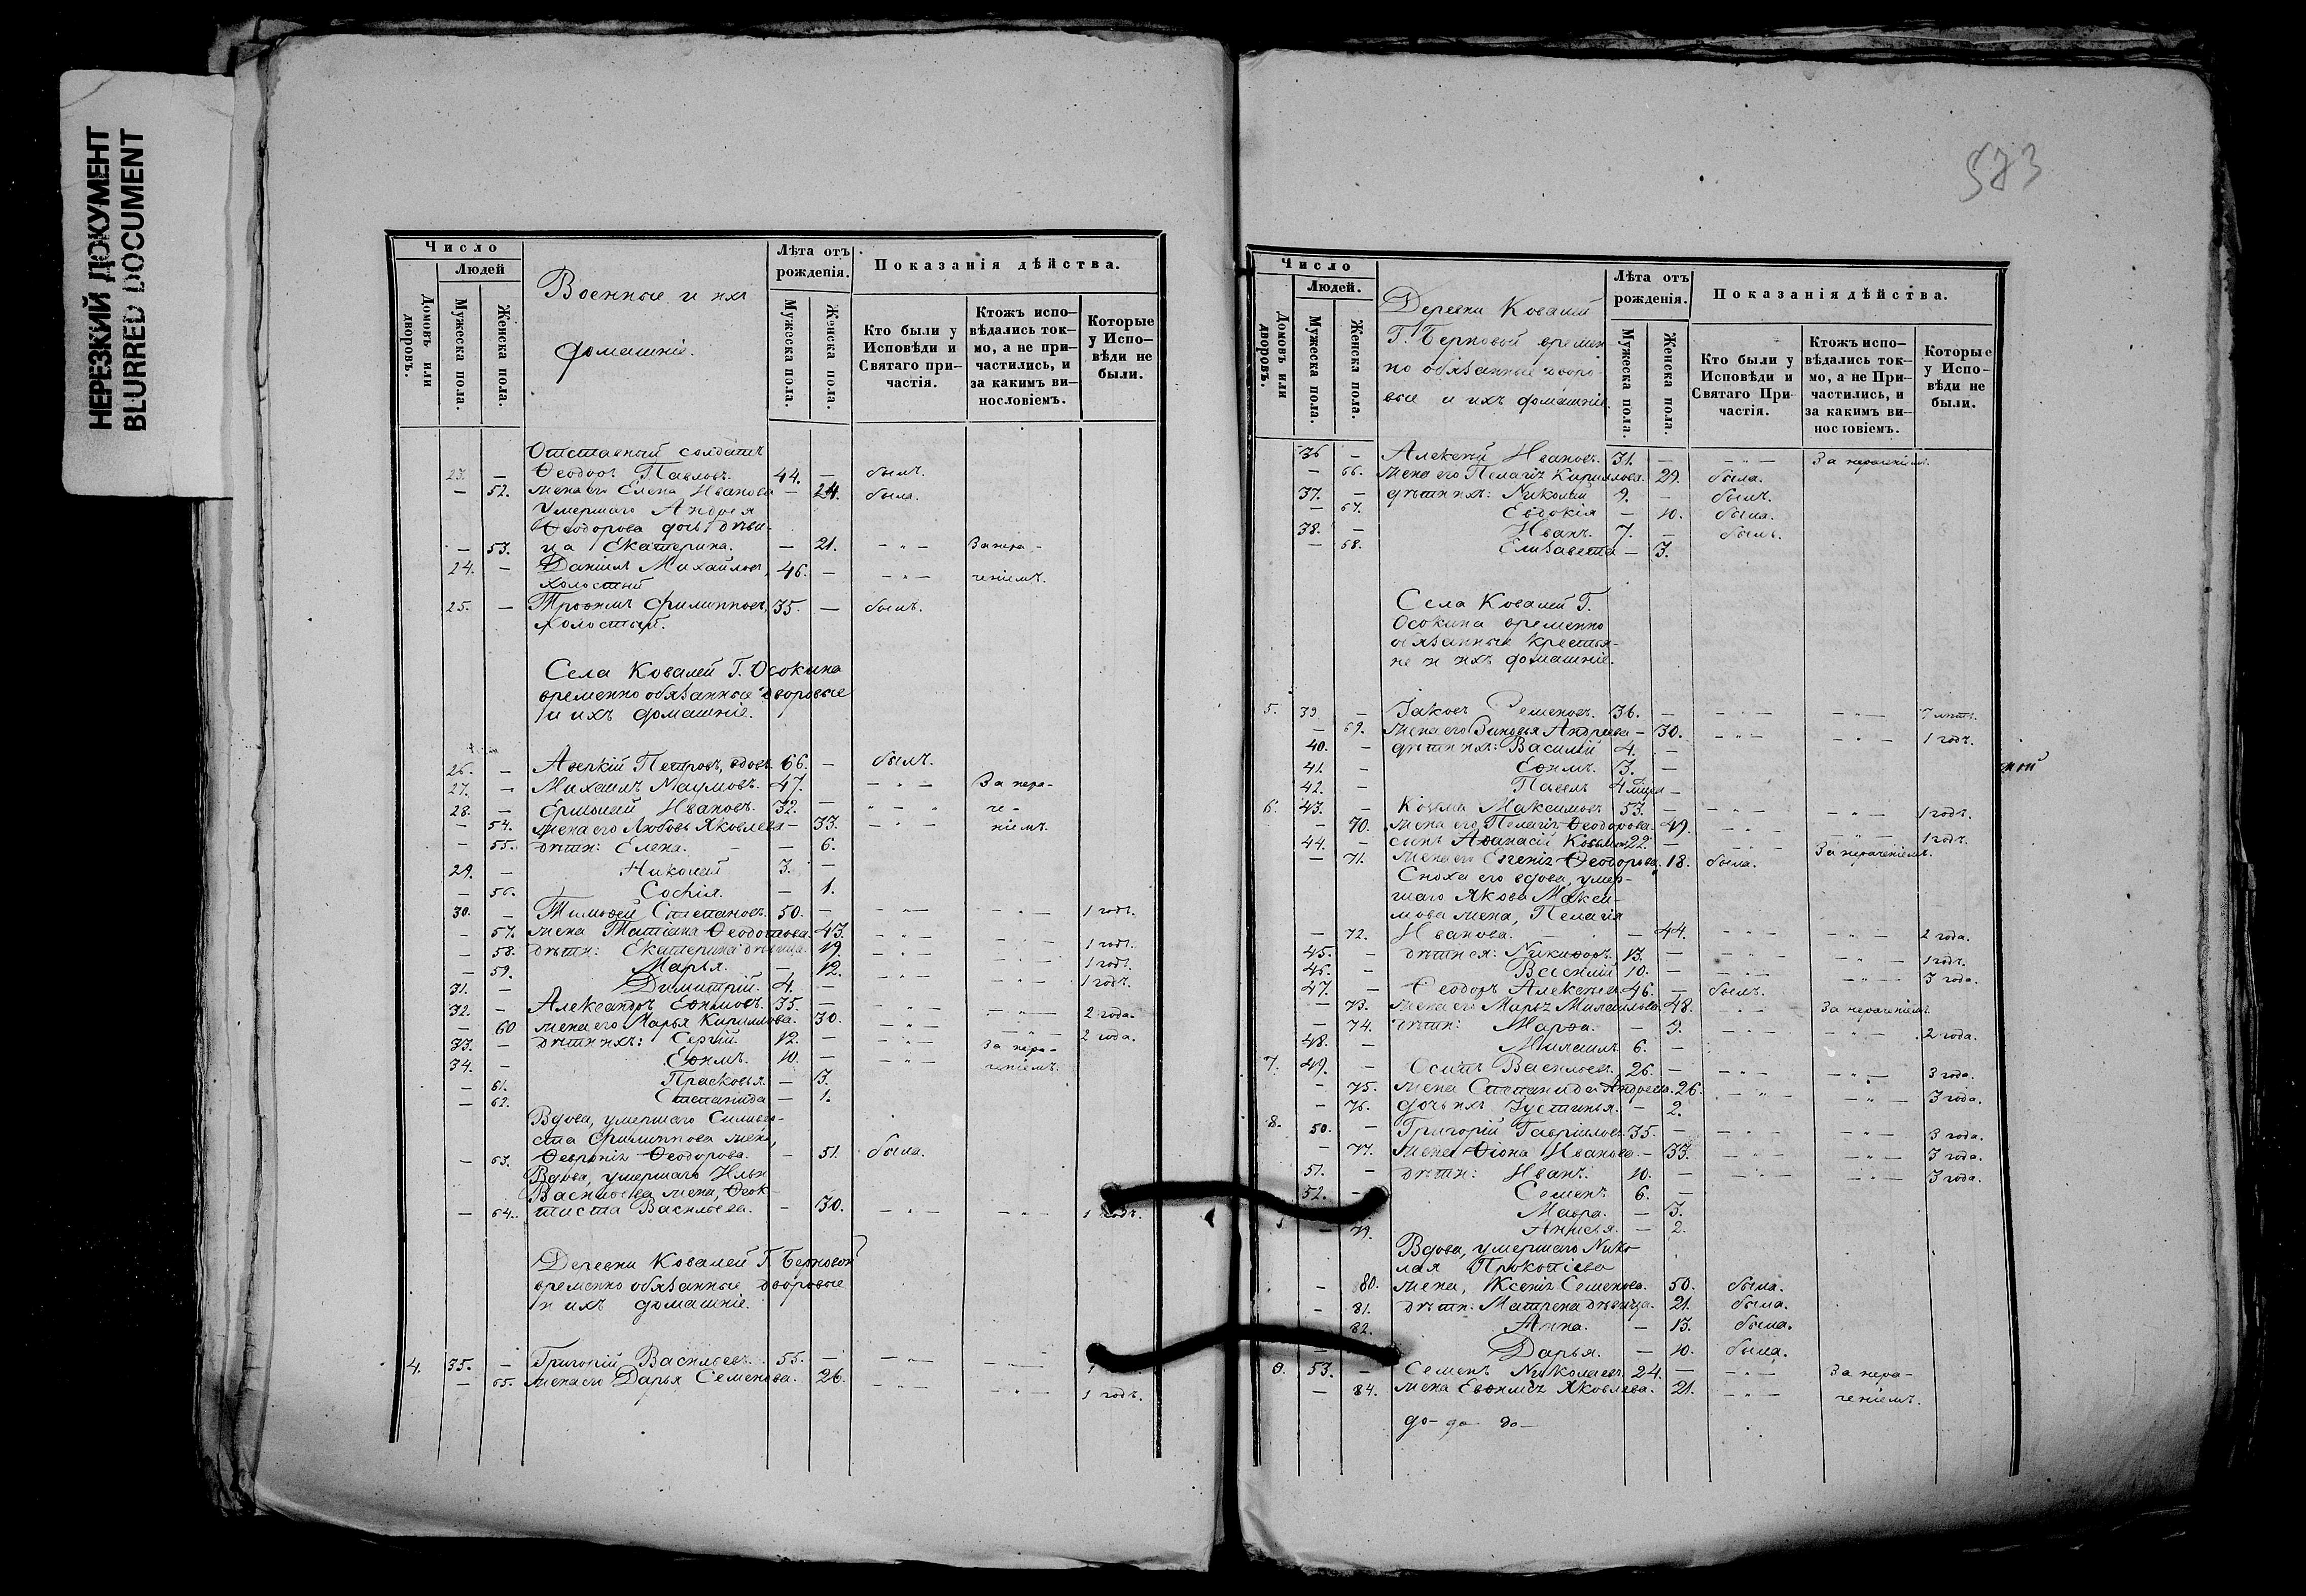 НЕРЕЗКИЙ ДОКУМЕНТ
BLURRED DOCUMENT
Число
Людей
Домовъ или дворовъ.
Мужеска пола.
Женска пола.
Военные и ихъ
домашніе.
Лѣта отъ рожденія.
Мужеска пола.
Женска пола.
Показанія дѣйства.
Кто были у Исповѣди и Святаго при-частія.
Ктожъ испо-вѣдались ток-мо, а не при-частились, и за какимъ ви-нословіемъ.
Которые у Испо-вѣди не были.
Отставный солдатъ
23. — Ѳеодоръ Павловъ. 44. — былъ.
— 52. жена его Елена Иванова — 24. была.
Умершаго Андрея
Ѳеодорова дочь дѣви-
— 53. ца Екатерина. — 21. — „ — За нера-
24. — Даніилъ Михайловъ, 46. — — „ — ченіемъ.
холостый
25. — Трофимъ Филипповъ, 35. — былъ.
холостый.
Села Ковалей Г. Осокина
временно обязанные дворовые
и ихъ домашніе.
26. — Аверкій Петровъ, вдовъ. 66. — былъ.
27. — Михаилъ Наумовъ. 47. — „ — За нера-
28. — Ермолай Ивановъ. 32. — — „ — че-
— 54. жена его Любовь Яковлева — 33. — „ — ніемъ.
— 55. дѣти: Елена. — — 6.
29. — Николай 3. —
— 56. Софія. — 1.
30. — Тимоѳей Степановъ. 50. — — „ — — „ — 1 годъ.
— 57. жена Татіана Ѳеодотова. 43. — „ — — „ — 1 годъ.
— 58. дѣти: Екатерина дѣвица. 19. — „ — — „ — 1 годъ.
— 59. Марья. — 12. — „ — — „ — 1 годъ.
31. — Димитрій. 4. —
32. — Александръ Еѳимовъ. 35. — — „ — — „ — 2 года.
— 60 жена его Марья Кириллова. 30. — „ — — „ — 2 года.
33. — дѣти ихъ: Сергій. 12. — — „ — За нера-
34. — Еѳимъ. 10. — — „ — ченіемъ.
— 61. Прасковья. — 3.
— 62. Степанида — 1.
Вдова, умершаго Сильве-
ста Филиппова жена,
— 63. Ѳевронія Ѳеодорова. — 51. была.
Вдова, умершаго Ильи
Васильева жена, Ѳеок-
— 64. тиста Васильева. — 30. — „ — — „ — 1 годъ.
Деревни Ковалей Г. Берновой
временно обязанные дворовые
и ихъ домашніе.
4. 35. — Григорій Васильевъ. 55. — — „ — — „ — 1
— 65. жена его Дарья Семенова. 26. — „ — — „ — 1 годъ.
573
Число
Людей.
Домовъ или дворовъ.
Мужеска пола.
Женска пола.
Деревни Ковалей
Г. Берновой времен
но обязанные дворо-
вые и ихъ домашніе.
Лѣта отъ рожденія.
Мужеска пола.
Женска пола.
Показанія дѣйства.
Кто были у Исповѣди и Святаго При-частія.
Ктожъ испо-вѣдались ток-мо, а не При-частились, и за какимъ ви-нословіемъ.
Которые у Испо-вѣди не были.
36 — Алексѣй Ивановъ. 31. — — „ — За нераченіемъ.
— 66. жена его Пелагія Кириллова. 29. была.
37. — дѣти ихъ: Николай 9. — былъ.
— 67. Евдокія — 10. была.
38. — Иванъ. 7. — былъ.
— 68. Елизавета — 3.
Села Ковалей Г.
Осокина временно
обязанные крестья-
не и ихъ домашніе.
5. 39 — Іаковъ Семеновъ. 36. — — „ — — „ — 7 лѣтъ.
— 69. жена его Зиновья Андреева — 30. — „ — — „ — 1 годъ.
40. — дѣти ихъ: Василій 4. —
41. — Еѳимъ. 3. —
42. — Павелъ 4 мѣсяц —
6. 43. — Козьма Максимовъ 53. — — „ — — „ — 1 годъ.
— 70. жена его Пелагія Ѳеодорова. 49. — „ — — „ — 1 годъ.
44. — сынъ Аѳанасій Козьминъ 22. — — „ — За нераченіемъ.
— 71. жена его Евгенія Ѳеодорова. 18. была.
Сноха его вдова, умер-
шаго Якова Макси-
мова жена, Пелагія
— 72. Иванова. — 44. — „ — — „ — 2 года.
45. — дѣти ея: Никифоръ. 13. — — „ — — „ — 1 годъ.
46. — Василій 10. — — „ — — „ — 3 года.
47. — Ѳеодоръ Алексѣевъ. 46. — былъ.
— 73. жена его Марья Михайлова. 48. — „ — За нераченіемъ.
— 74. дѣти: Марѳа. — 9. — „ — — „ — 2 года.
48. — Михаилъ. 6. —
7. 49. — Осипъ Васильевъ. 26. — — „ — — „ — 3 года.
— 75. жена Степанида Андреева. 26. — „ — — „ — 3 года.
— 76. дочь ихъ Іустинья. — 2.
8. 50. — Григорій Гавріиловъ. 35. — — „ — — „ — 3 года.
— 77. жена Ѳіона Иванова. — 33. — „ — — „ — 3 года.
51. — дѣти: Иванъ. 10. — — „ — — „ — 3 года.
52. — Семенъ 6. —
Мавра. — 3.
— 79. Анисья. — 2.
Вдова, умершаго Нико-
лая Прокопіева
— 80. жена, Ксенія Семенова. 50. была.
— 81. дѣти: Матрена дѣвица. 21. была.
82. Анна. — 13. была.
Дарья. — 10. была.
9. 53. — Семенъ Николаевъ 24. — — „ — За нера-
— 84. жена Евѳимія Яковлева. 21. — „ — ченіемъ.
до- до- до-